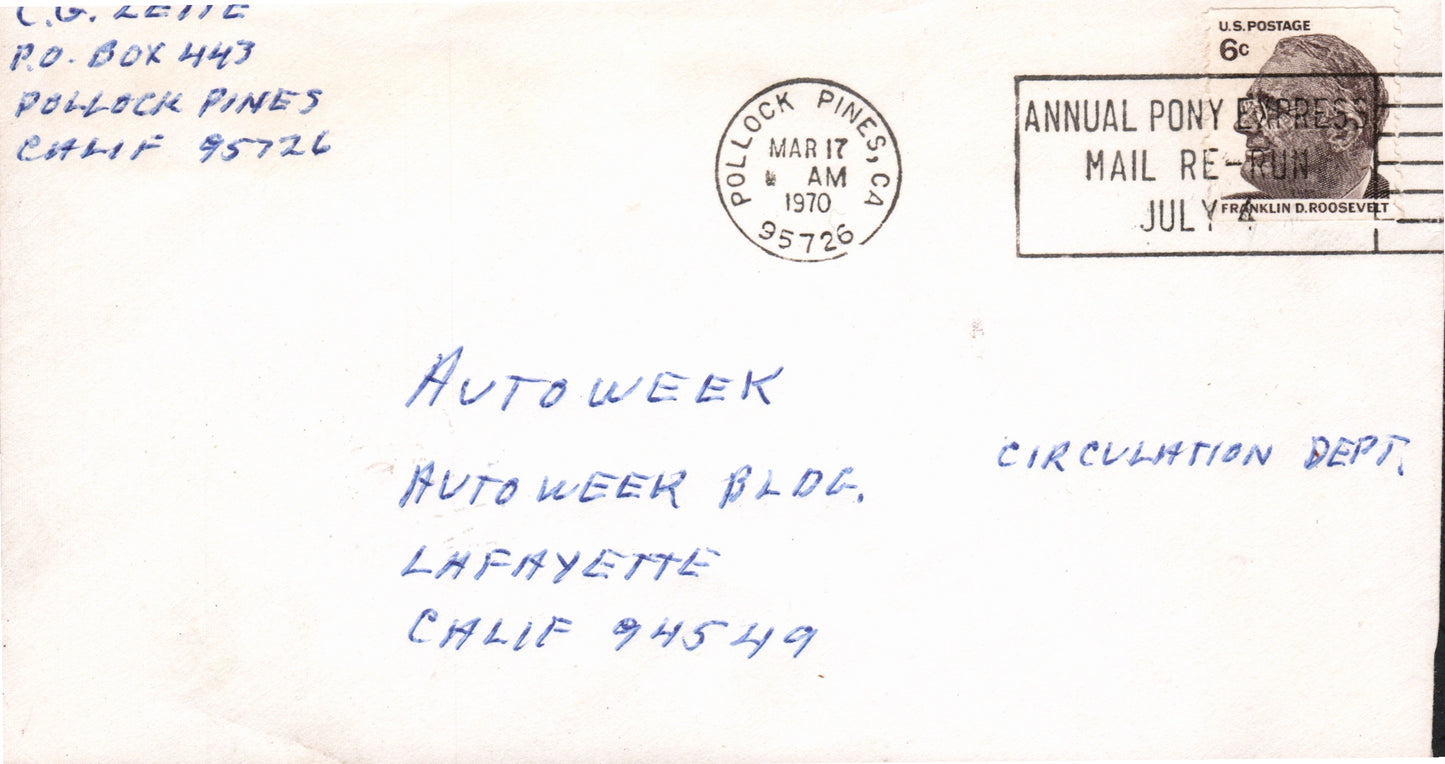 C.G. LETTE
P.O. BOX 443
POLLOCK PINES
CALIF 95726
POLLOCK PINES, CA
MAR 17
AM
1970
95726
ANNUAL PONY EXPRESS
MAIL RE-RUN
JULY 4
U.S. POSTAGE
6c
FRANKLIN D. ROOSEVELT
AUTOWEEK
AUTOWEEK BLDG.
LAFAYETTE
CALIF 94549
CIRCULATION DEPT.